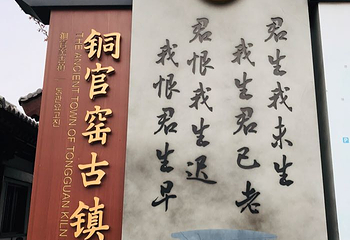 君生我未生
我生君已老
君恨我生迟
我恨君生早
铜官窑古镇
THE ANCIENT TOWN OF TONGGUAN KILN